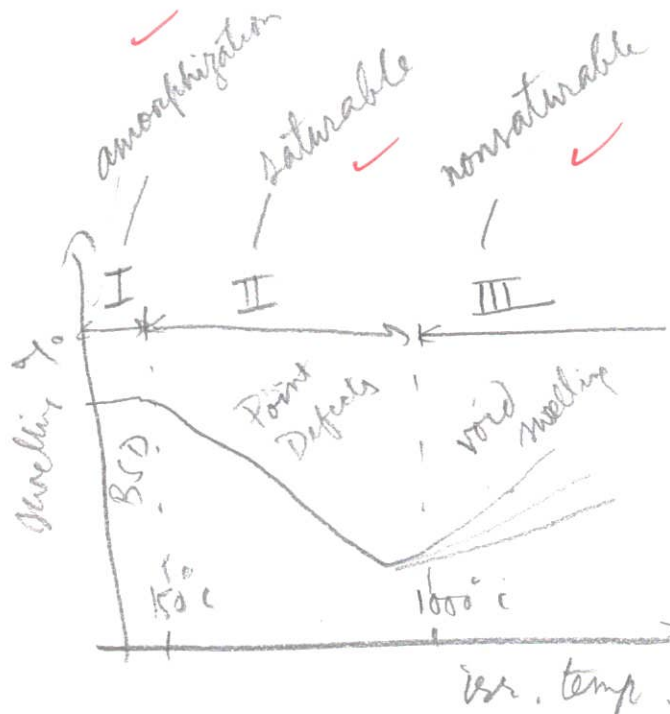 amorphization
saturable
nonsaturable
I
II
III
swelling %
Point
Defects
void
swelling
BSD.
150°C
1000°C
irr. temp.